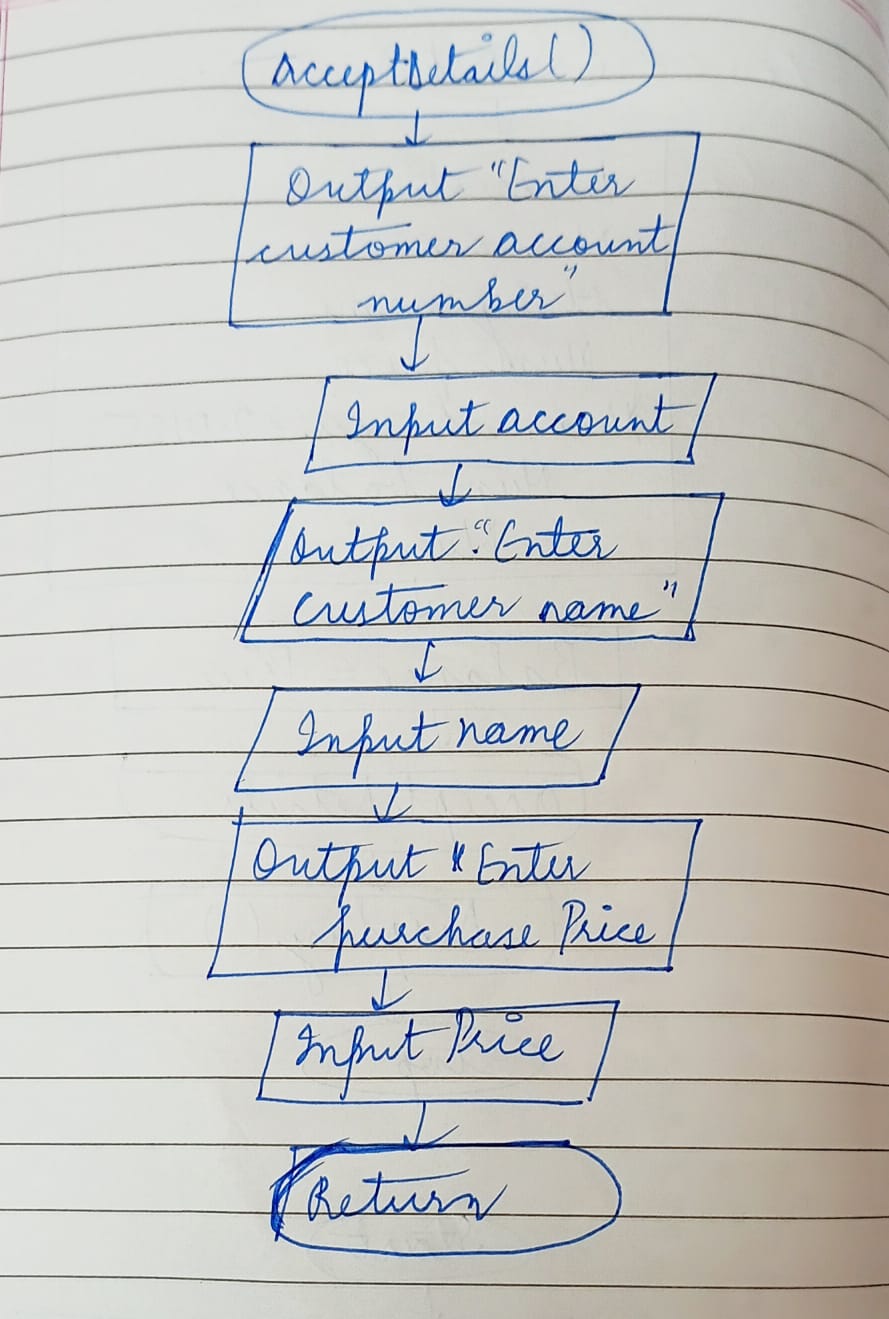 AcceptDetails()
Output "Enter
customer account
number"
Input account
Output "Enter
customer name"
Input name
Output "Enter
purchase Price
Input Price
Return